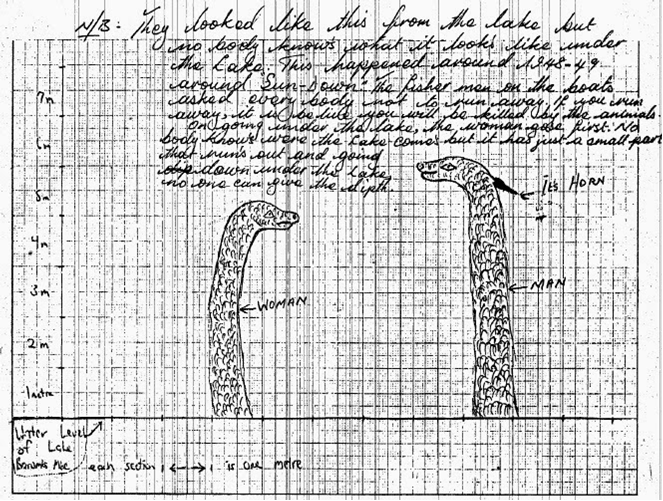 N/B: They looked like this from the lake but
no body knows what it looks like under
the Lake. This happened around 1948-49
around Sun-Down. The fisher men on the boats
asked every body not to run away, If you run
away, it will be like you will be killed by the animals.
On going under the lake, the woman goes first. No
body knows were the Lake comes but it has just a small part
that runs out and going
down under the Lake,
no one can give the depth.
7m
6m
5m
4m
3m
2m
1 metre
ITS HORN
WOMAN
MAN
Water Level
of Lake
each section is one metre